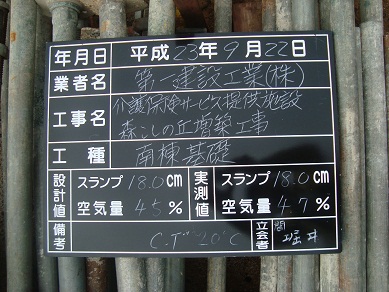 年月日 平成23年9月22日
業者名 第一建設工業(株)
工事名 介護保険サービス提供施設
森こしの丘増築工事
工種 南棟基礎
設計値 スランプ 18.0cm 実測値 スランプ 18.0cm
空気量 4.5% 空気量 4.7%
備考 C.T 20°C 立会者 堀井